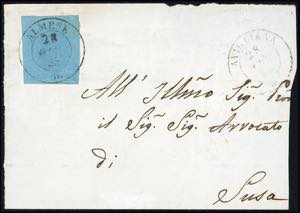 ALMESE
28
AVIGLIANA
28
All' Illmo Sig. Sig.
il Sig. Sig. Avvocato
di
Susa